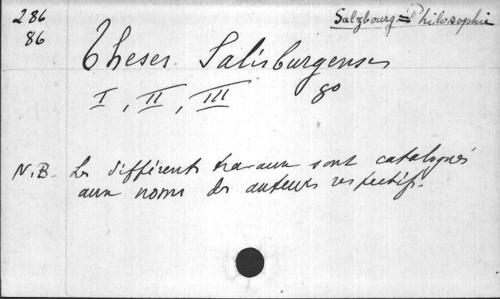 286
86
Salzbourg = Philosophie
Theses Salisburgenses
I, II, III 8o
N.B. Les différents travaux sont catalogués
aux noms des auteurs respectifs.